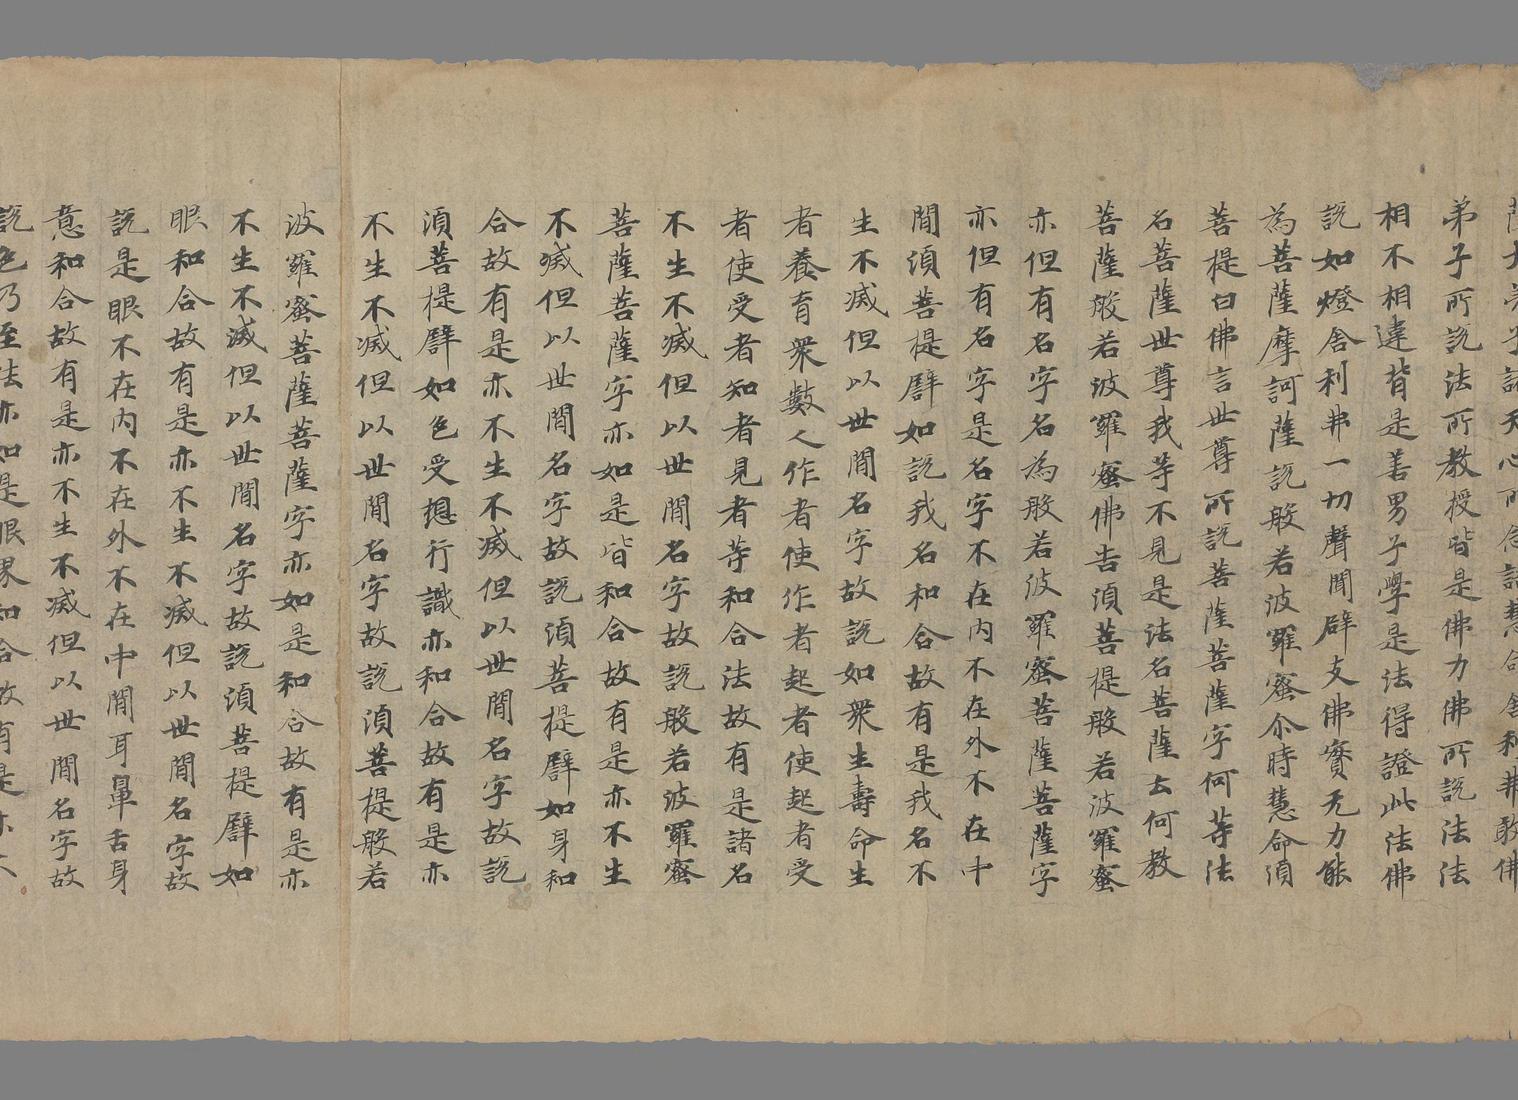 弟子所說法所教授皆是佛力佛所說法法
相不相違背是善男子學是法得證此法佛
說如燈舍利弗一切聲聞辟支佛實无力能
為菩薩摩訶薩說般若波羅蜜尒時慧命須
菩提白佛言世尊所說菩薩菩薩字何等法
名菩薩世尊我等不見是法名菩薩云何教
菩薩般若波羅蜜佛告須菩提般若波羅蜜
亦但有名字名為般若波羅蜜菩薩菩薩字
亦但有名字是名字不在内不在外不在中
間須菩提辟如說我名和合故有是我名不
生不滅但以世間名字故說如衆生壽命生
者養育衆數人作者使作者起者使起者受
者使受者知者見者等和合法故有是諸名
不生不滅但以世間名字故說般若波羅蜜
菩薩菩薩字亦如是皆和合故有是亦不生
不滅但以世間名字故說須菩提辟如身和
合故有是亦不生不滅但以世間名字故說
須菩提辟如色受想行識亦和合故有是亦
不生不滅但以世間名字故說須菩提般若
波羅蜜菩薩菩薩字亦如是和合故有是亦
不生不滅但以世間名字故說須菩提辟如
眼和合故有是亦不生不滅但以世間名字故
說是眼不在内不在外不在中間耳鼻舌身
意和合故有是亦不生不滅但以世間名字故
說色乃至法亦如是眼界和合故有是亦不